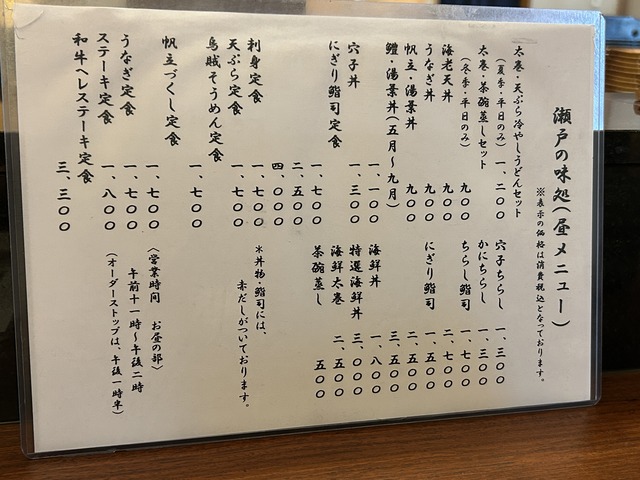 瀬戸の味処(昼メニュー)
※表示の価格は消費税込となっております。
太巻・天ぷら冷やしうどんセット
(夏季・平日のみ) 一、二〇〇
太巻・茶碗蒸しセット
(冬季・平日のみ) 九〇〇
海老天丼 九〇〇
うなぎ丼 九〇〇
帆立・湯葉丼 九〇〇
鱧・湯葉丼(五月〜九月) 一、一〇〇
穴子丼 一、三〇〇
にぎり鮨司定食 一、七〇〇
二、五〇〇
四、〇〇〇
刺身定食 一、七〇〇
天ぷら定食 一、七〇〇
烏賊そうめん定食 一、七〇〇
帆立づくし定食 一、七〇〇
うなぎ定食 一、七〇〇
ステーキ定食 一、八〇〇
和牛ヘレステーキ定食 三、三〇〇
穴子ちらし 一、三〇〇
かにちらし 一、三〇〇
ちらし鮨司 一、七〇〇
二、七〇〇
にぎり鮨司 一、五〇〇
二、五〇〇
三、五〇〇
海鮮丼 一、八〇〇
特選海鮮丼 三、〇〇〇
海鮮太巻 二、五〇〇
茶碗蒸し 五〇〇
*丼物・鮨司には、
赤だしがついております。
〈営業時間 お昼の部〉
午前十一時〜午後二時
(オーダーストップは、午後一時半)